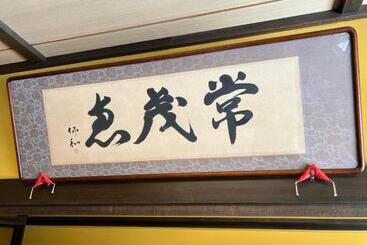 常茂恵